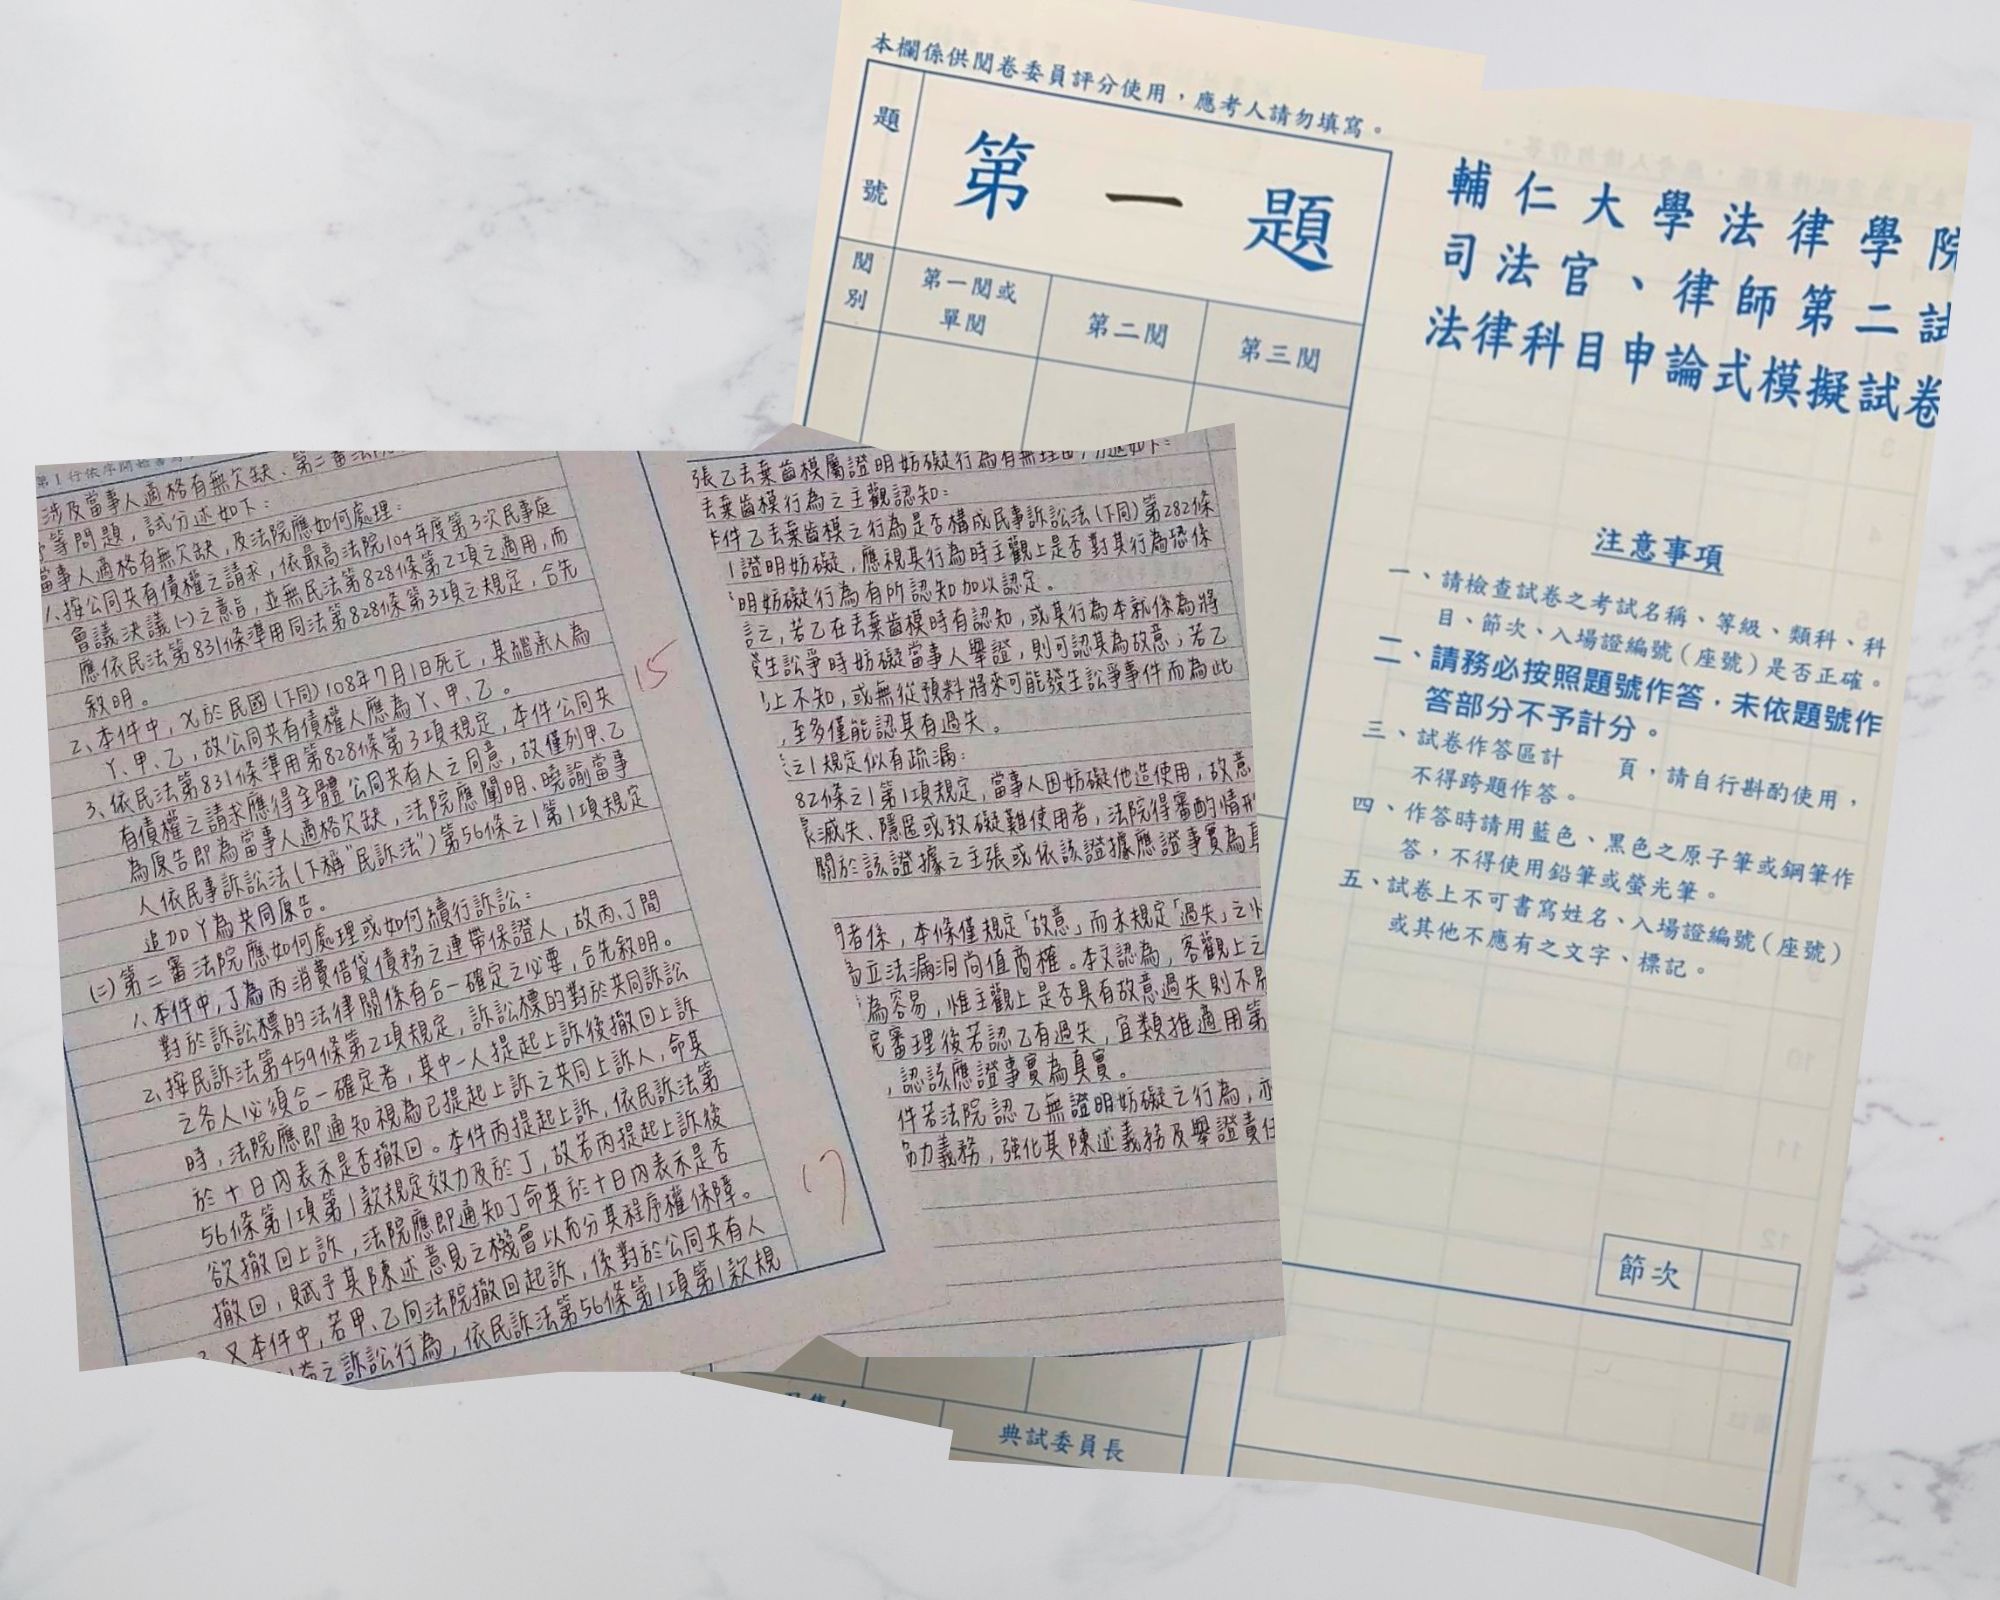 本欄係供閱卷委員評分使用，應考人請勿填寫。
題號
第一題
閱別
第一閱或
單閱
第二閱
第三閱
輔仁大學法律學院
司法官、律師第二試
法律科目申論式模擬試卷
注意事項
一、請檢查試卷之考試名稱、等級、類科、科
目、節次、入場證編號（座號）是否正確。
二、請務必按照題號作答．未依題號作
答部分不予計分。
三、試卷作答區計　　頁，請自行斟酌使用，
不得跨題作答。
四、作答時請用藍色、黑色之原子筆或鋼筆作
答，不得使用鉛筆或螢光筆。
五、試卷上不可書寫姓名、入場證編號（座號）
或其他不應有之文字、標記。
節次
典試委員長
第1行依序開始書寫
涉及當事人適格有無欠缺、第二審法院
等問題，試分述如下：
當事人適格有無欠缺，及法院應如何處理：
1、按公同共有債權之請求，依最高法院104年度第3次民事庭
會議決議(一)之意旨，並無民法第828條第2項之適用，而
應依民法第831條準用同法第828條第3項之規定，合先
敘明。
2、本件中，X於民國(下同)108年7月1日死亡，其繼承人為
Y、甲、乙，故公同共有債權人應為Y、甲、乙。
3、依民法第831條準用第828條第3項規定，本件公同共
有債權之請求應得全體公同共有人之同意，故僅列甲、乙
為原告即為當事人適格欠缺，法院應闡明、曉諭當事
人依民事訴訟法(下稱"民訴法")第56條之1第1項規定
追加Y為共同原告。
(二)第二審法院應如何處理或如何續行訴訟：
1、本件中，丁為丙消費借貸債務之連帶保證人，故丙、丁間
對於訴訟標的法律關係有合一確定之必要，合先敘明。
2、按民訴法第459條第2項規定，訴訟標的對於共同訴訟
之各人必須合一確定者，其中一人提起上訴後撤回上訴
時，法院應即通知視為已提起上訴之共同上訴人，命其
於十日內表示是否撤回。本件丙提起上訴，依民訴法第
56條第1項第1款規定效力及於丁，故若丙提起上訴後
欲撤回上訴，法院應即通知丁命其於十日內表示是否
撤回，賦予其陳述意見之機會以充分其程序權保障。
又本件中，若甲、乙向法院撤回起訴，係對於公同共有人
益之訴訟行為，依民訴法第56條第1項第1款規
15
17
張乙丟棄齒模屬證明妨礙行為有無理由，分述如下：
丟棄齒模行為之主觀認知：
件乙丟棄齒模之行為是否構成民事訴訟法(下同)第282條
1證明妨礙，應視其行為時主觀上是否對其行為恐係
明妨礙行為有所認知加以認定。
言之，若乙在丟棄齒模時有認知，或其行為本就係為將
發生訟爭時妨礙當事人舉證，則可認其為故意；若乙
上不知，或無從預料將來可能發生訟爭事件而為此
，至多僅能認其有過失。
之1規定似有疏漏：
82條之1第1項規定，當事人因妨礙他造使用，故意
滅失、隱匿或致礙難使用者，法院得審酌情形
關於該證據之主張或依該證據應證事實為真
者係，本條僅規定「故意」而未規定「過失」之
為立法漏洞尚值商榷。本文認為，客觀上之
為容易，惟主觀上是否具有故意過失則不易
完審理後若認乙有過失，宜類推適用第
，認該應證事實為真實。
件若法院認乙無證明妨礙之行為，亦
協力義務，強化其陳述義務及舉證責任